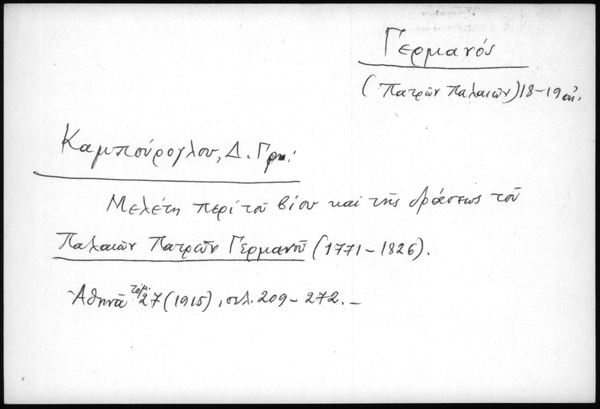 Γερμανός
(Πατρῶν Παλαιῶν) 18-19 αἰ.
Καμπούρογλου, Δ. Γρ.:
Μελέτη περὶ τοῦ βίου καὶ τῆς δράσεως τοῦ
Παλαιῶν Πατρῶν Γερμανοῦ (1771-1826).
Ἀθηνᾶ τομ. 27 (1915), σελ. 209-272.-